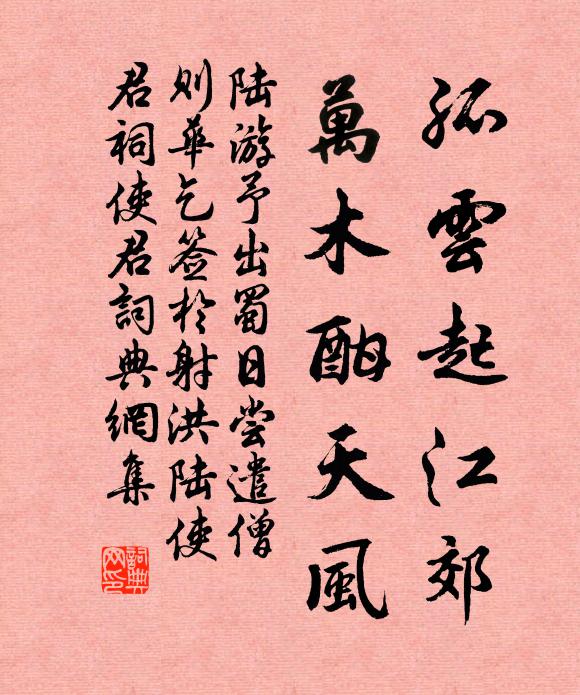 孤雲起江郊
萬木酣天風
陸游予出蜀日尝遣僧
则華乞签於射洪陸使
君祠使君詞典網集
詞典网印